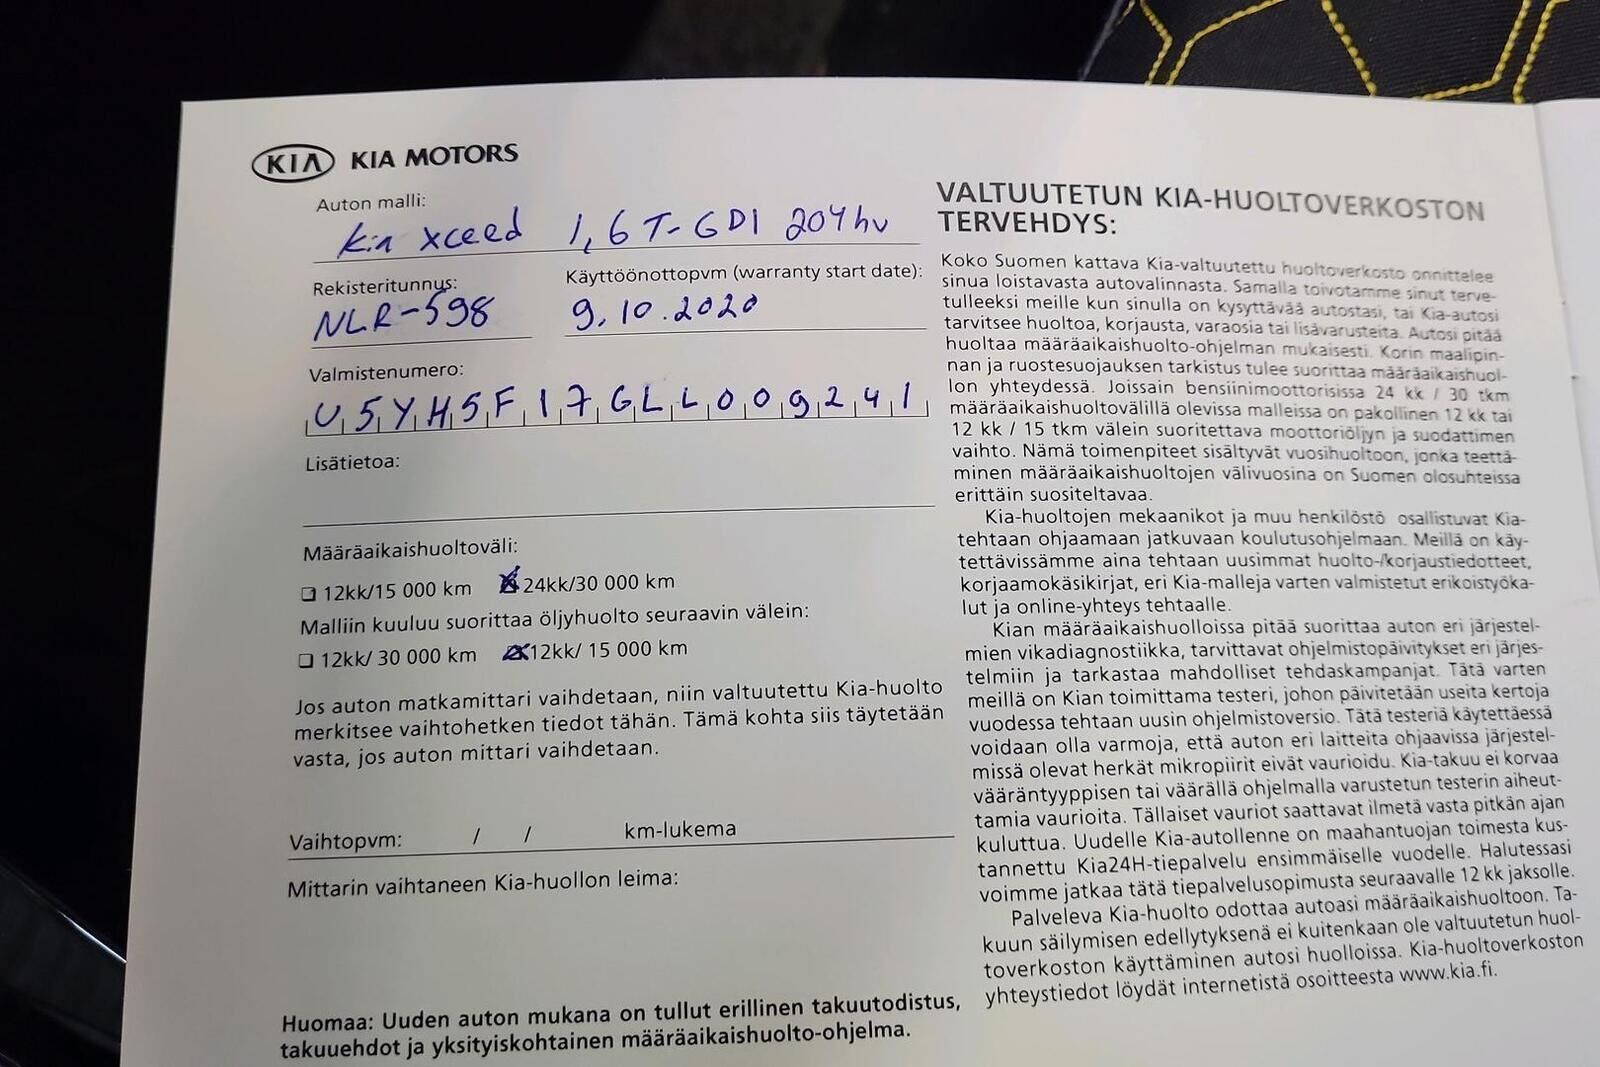 KIA KIA MOTORS
Auton malli:
Kia xceed 1,6 T-GDI 204hv
Rekisteritunnus:
Käyttöönottopvm (warranty start date):
NLR-598
9.10.2020
Valmistenumero:
U5YH5F17GLL009241
Lisätietoa:
Määräaikaishuoltoväli:
12kk/15 000 km
24kk/30 000 km
Malliin kuuluu suorittaa öljyhuolto seuraavin välein:
12kk/ 30 000 km
12kk/ 15 000 km
Jos auton matkamittari vaihdetaan, niin valtuutettu Kia-huolto
merkitsee vaihtohetken tiedot tähän. Tämä kohta siis täytetään
vasta, jos auton mittari vaihdetaan.
Vaihtopvm: / / km-lukema
Mittarin vaihtaneen Kia-huollon leima:
Huomaa: Uuden auton mukana on tullut erillinen takuutodistus,
takuuehdot ja yksityiskohtainen määräaikaishuolto-ohjelma.
VALTUUTETUN KIA-HUOLTOVERKOSTON
TERVEHDYS:
Koko Suomen kattava Kia-valtuutettu huoltoverkosto onnittelee
sinua loistavasta autovalinnasta. Samalla toivotamme sinut terve-
tulleeksi meille kun sinulla on kysyttävää autostasi, tai Kia-autosi
tarvitsee huoltoa, korjausta, varaosia tai lisävarusteita. Autosi pitää
huoltaa määräaikaishuolto-ohjelman mukaisesti. Korin maalipin-
nan ja ruostesuojauksen tarkistus tulee suorittaa määräaikaishuol-
lon yhteydessä. Joissain bensiinimoottorisissa 24 kk / 30 tkm
määräaikaishuoltovälillä olevissa malleissa on pakollinen 12 kk tai
12 kk / 15 tkm välein suoritettava moottoriöljyn ja suodattimen
vaihto. Nämä toimenpiteet sisältyvät vuosihuoltoon, jonka teettä-
minen määräaikaishuoltojen välivuosina on Suomen olosuhteissa
erittäin suositeltavaa.
Kia-huoltojen mekaanikot ja muu henkilöstö osallistuvat Kia-
tehtaan ohjaamaan jatkuvaan koulutusohjelmaan. Meillä on käy-
tettävissämme aina tehtaan uusimmat huolto-/korjaustiedotteet,
korjaamokäsikirjat, eri Kia-malleja varten valmistetut erikoistyöka-
lut ja online-yhteys tehtaalle.
Kian määräaikaishuolloissa pitää suorittaa auton eri järjestel-
mien vikadiagnostiikka, tarvittavat ohjelmistopäivitykset eri järjes-
telmiin ja tarkastaa mahdolliset tehdaskampanjat. Tätä varten
meillä on Kian toimittama testeri, johon päivitetään useita kertoja
vuodessa tehtaan uusin ohjelmistoversio. Tätä testeriä käytettäessä
voidaan olla varmoja, että auton eri laitteita ohjaavissa järjestel-
missä olevat herkät mikropiirit eivät vaurioidu. Kia-takuu ei korvaa
vääräntyyppisen tai väärällä ohjelmalla varustetun testerin aiheut-
tamia vaurioita. Tällaiset vauriot saattavat ilmetä vasta pitkän ajan
kuluttua. Uudelle Kia-autollenne on maahantuojan toimesta kus-
tannettu Kia24H-tiepalvelu ensimmäiselle vuodelle. Halutessasi
voimme jatkaa tätä tiepalvelusopimusta seuraavalle 12 kk jaksolle.
Palveleva Kia-huolto odottaa autoasi määräaikaishuoltoon. Ta-
kuun säilymisen edellytyksenä ei kuitenkaan ole valtuutetun huol-
toverkoston käyttäminen autosi huolloissa. Kia-huoltoverkoston
yhteystiedot löydät internetistä osoitteesta www.kia.fi.